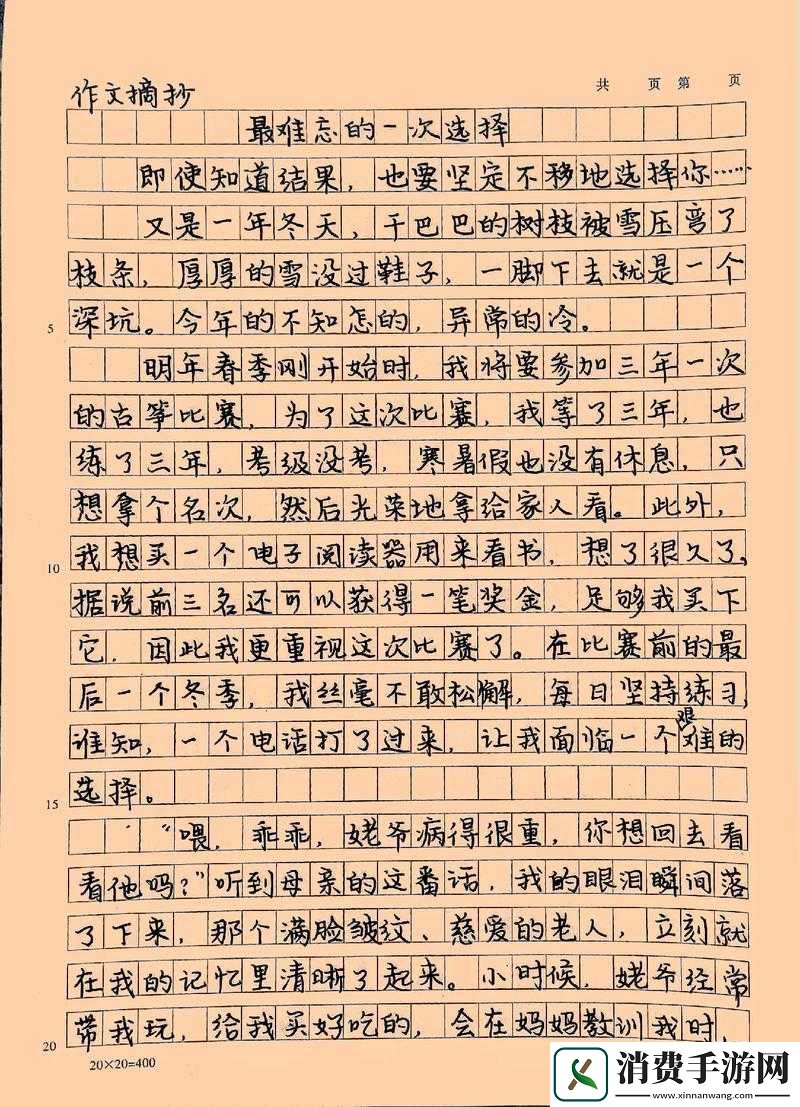 共 页 第 页
作文摘抄
最难忘的一次选择
即使知道结果，也要坚定不移地选择你……
又是一年冬天，干巴巴的树枝被雪压弯了
枝条，厚厚的雪没过鞋子，一脚下去就是一个
深坑。今年的不知怎的，异常的冷。
5
明年春季刚开始时，我将要参加三年一次
的古筝比赛，为了这次比赛，我等了三年，也
练了三年，考级没考，寒暑假也没有休息，只
想拿个名次，然后光荣地拿给家人看。此外，
我想买一个电子阅读器用来看书，想了很久了，
10
据说前三名还可以获得一笔奖金，足够我买下
它，因此我更重视这次比赛了。在比赛前的最
后一个冬季，我丝毫不敢松懈，每日坚持练习，
谁知，一个电话打了过来，让我面临一个艰难的
选择。
15
“喂，乖乖，姥爷病得很重，你想回去看
看他吗？”听到母亲的这番话，我的眼泪瞬间落
了下来，那个满脸皱纹、慈爱的老人，立刻就
在我的记忆里清晰了起来。小时候，姥爷经常
带我玩，给我买好吃的，会在妈妈教训我时，
20
20×20=400
消费手游网
www.xinnanwang.com